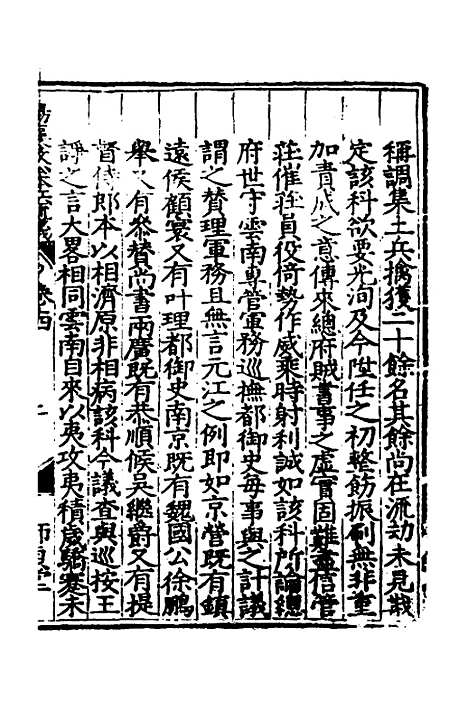 稱調集土兵擒獲二十餘名其餘尚在流劫未見戡
定該科欲要光洵及今陞任之初整飭振刷無非重
加責成之意傳來總府賊書事之虛實固難盡信管
莊催莊員役倚勢作威乘時射利誠如該科所論總
府世守雲南專管軍務巡撫都御史每事與之計議
謂之贊理軍務且無言元江之例即如京營既有鎮
遠侯顧寰又有叶理都御史南京既有魏國公徐鵬
舉又有參贊尚書兩廣既有恭順侯吳繼爵又有提
督侍郎本以相濟原非相病該科今議查與巡按王
諍之言大畧相同雲南自來以夷攻夷積歲驕蹇未
卷四